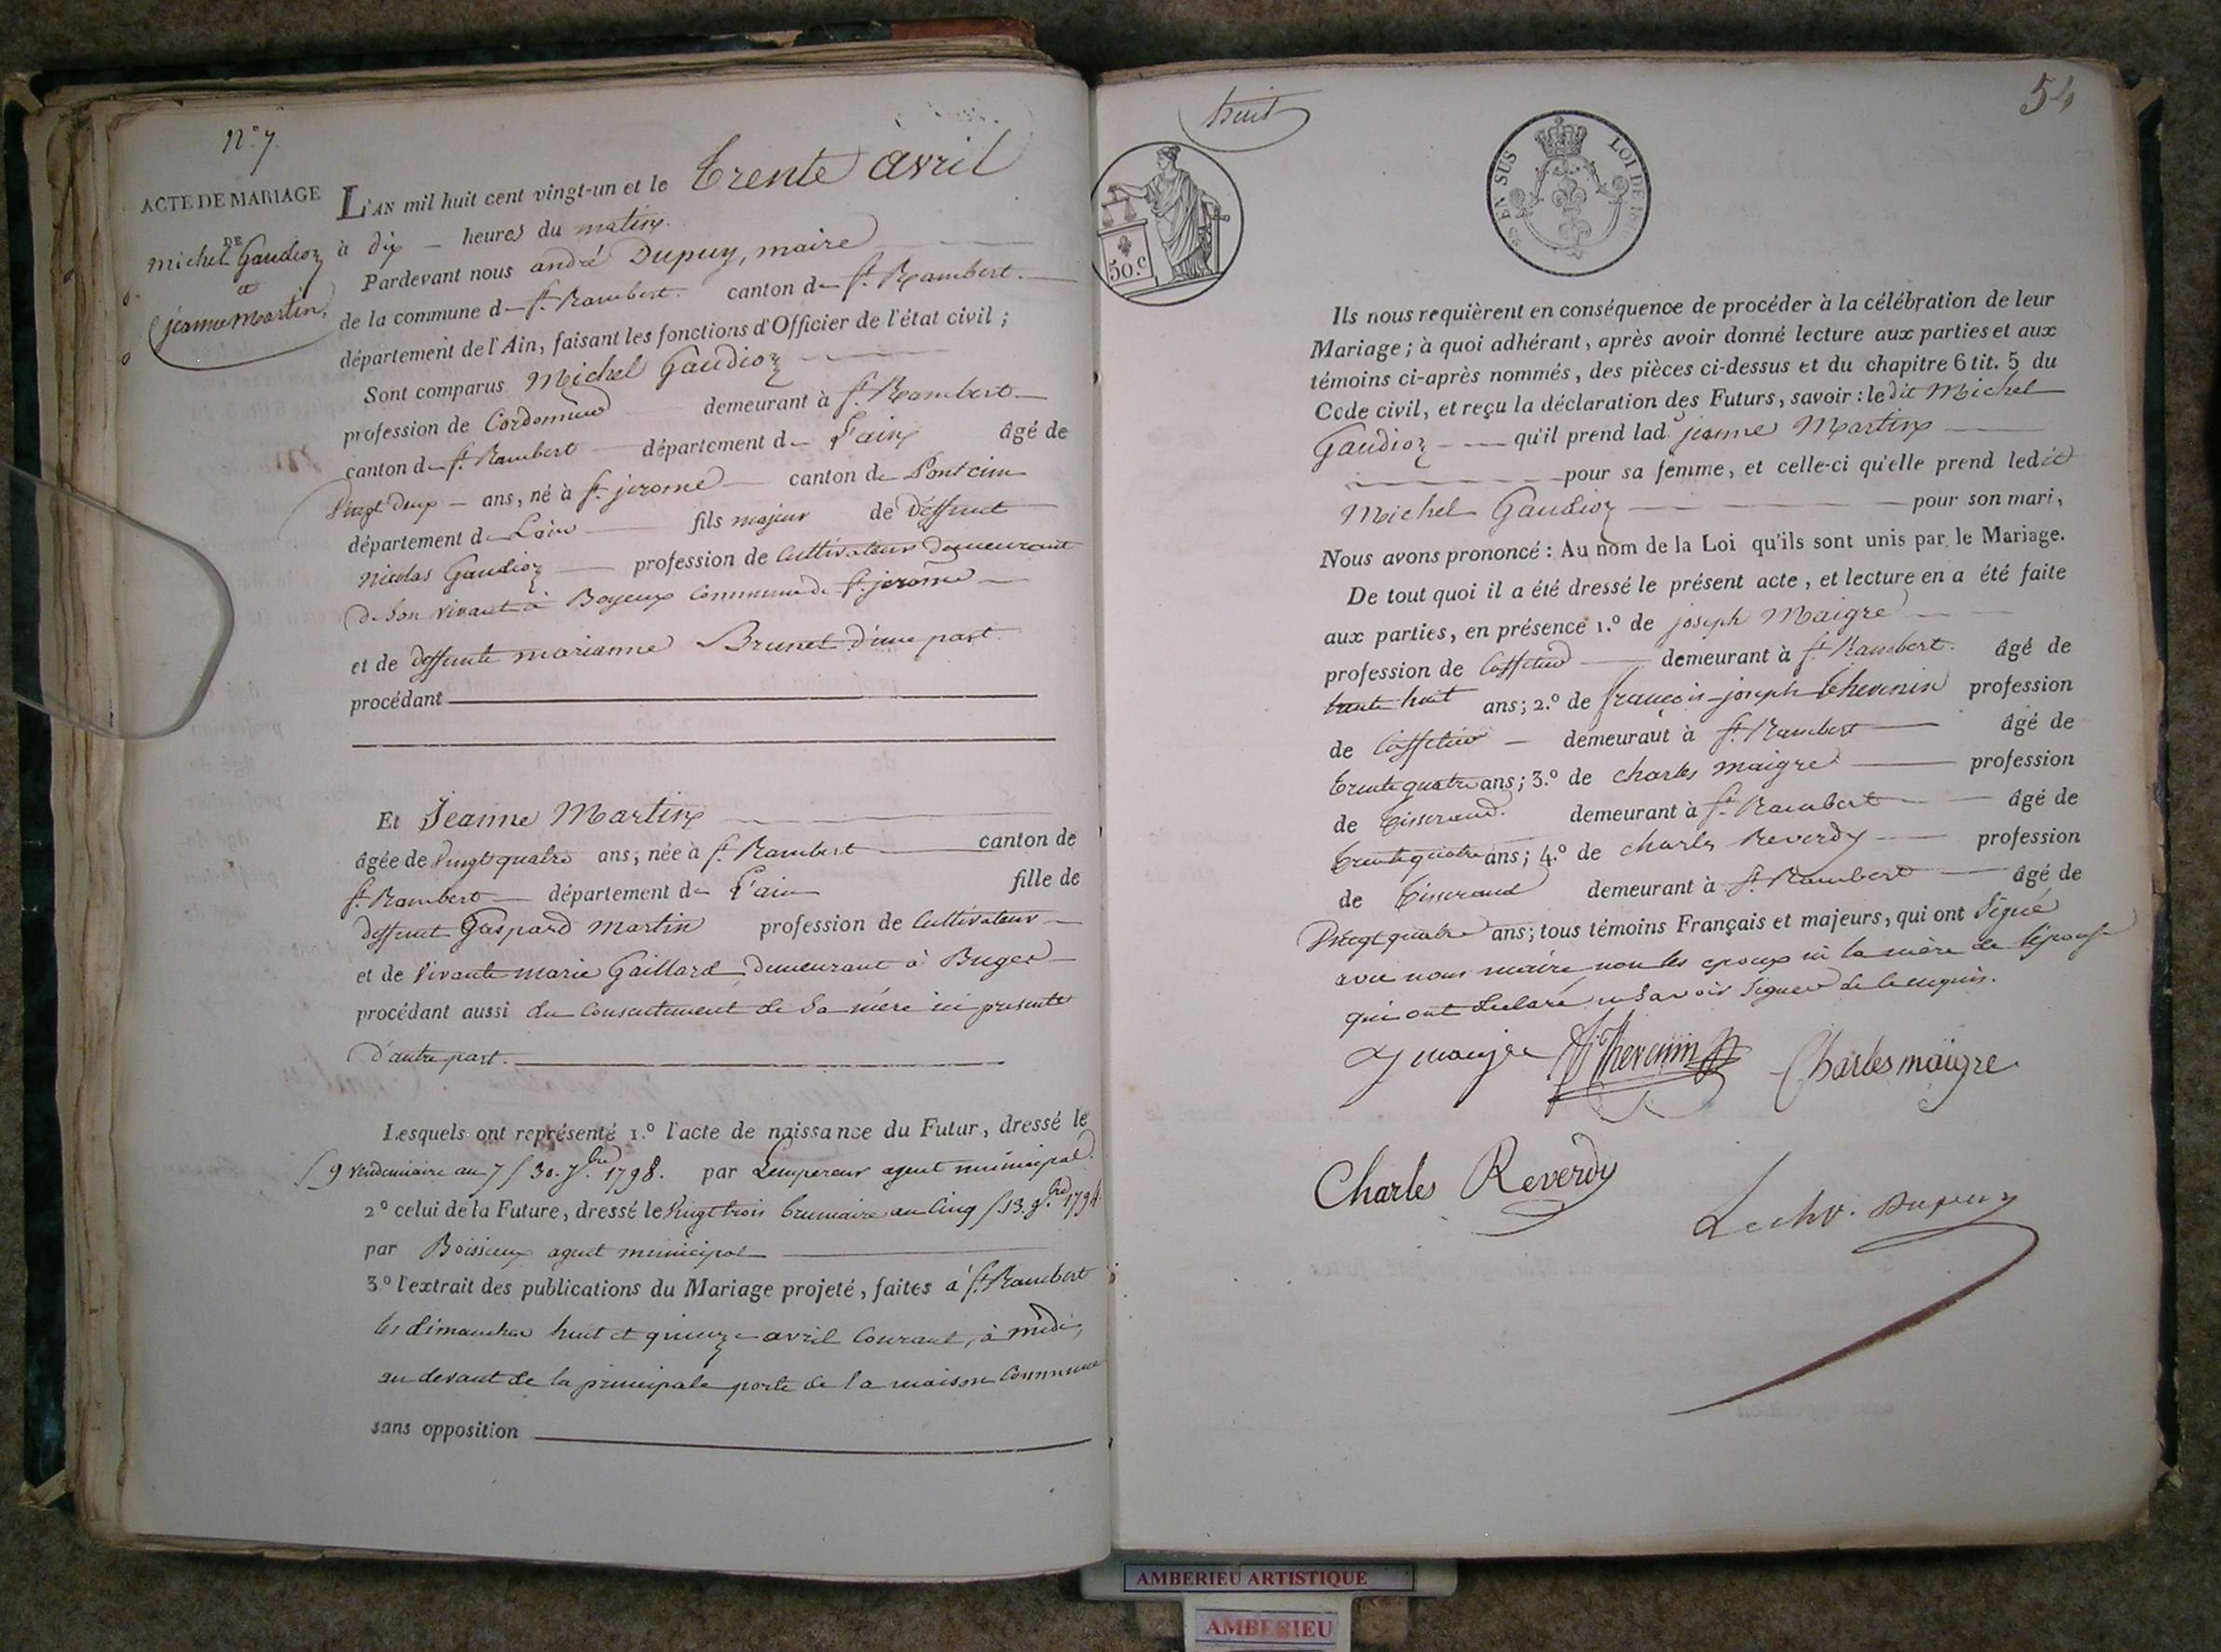 N.º 7.
ACTE DE MARIAGE
DE
michel Gaudioz
et
jeanne martin.
L'AN mil huit cent vingt-un et le trente avril
à dix heures du matin.
Pardevant nous andré Dupuy, maire
de la commune de St. Rambert. canton de St. Rambert.
département de l'Ain, faisant les fonctions d'Officier de l'état civil ;
Sont comparus Michel Gaudioz
profession de Cordonnier demeurant à St. Rambert
canton de St. Rambert département de l'ain âgé de
Vingt deux ans, né à St. jerome canton de Pontcin
département de L'ain fils majeur de deffunt
Nicolas Gaudioz profession de Cultivateur demeurant
de son vivant à Boyeux Commune de St. jerôme
et de deffunte marianne Brunet d'une part.
procédant
Et Jeanne Martin
âgée de Vingt quatre ans, née à St. Rambert canton de
St. Rambert département de l'ain fille de
deffunt Gaspard Martin profession de Cultivateur
et de Vivante marie Gaillard, demeurant à Buges
procédant aussi du Consentement de sa mère ici presente
d'autre part.
Lesquels ont représenté 1.º l'acte de naissance du Futur, dressé le
9 vendemiaire an 7 / 30. 7.bre 1798. par Lempereur agent municipal.
2º celui de la Future, dressé le Vingt trois brumaire an Cinq / 13. 9.bre
par Boissieux agent municipal
3.º l'extrait des publications du Mariage projeté, faites à St. Rambert
les dimanches huit et quinze avril Courant, à midi,
au devant de la principale porte de la maison Commune
sans opposition
huit
54
50.c
EN SUS
LOI DE
Ils nous requièrent en conséquence de procéder à la célébration de leur
Mariage ; à quoi adhérant, après avoir donné lecture aux parties et aux
témoins ci-après nommés, des pièces ci-dessus et du chapitre 6 tit. 5 du
Code civil, et reçu la déclaration des Futurs, savoir : ledit Michel
Gaudioz qu'il prend lad. jeanne Martin
pour sa femme, et celle-ci qu'elle prend ledit
Michel Gaudioz pour son mari,
Nous avons prononcé : Au nom de la Loi qu'ils sont unis par le Mariage.
De tout quoi il a été dressé le présent acte, et lecture en a été faite
aux parties, en présence 1.º de joseph Maigre
profession de Caffetier demeurant à St. Rambert. âgé de
trente huit ans ; 2.º de françois-joseph thevenin profession
de Caffetier demeurant à St. Rambert âgé de
trente quatre ans ; 3.º de charles maigre profession
de tisserand. demeurant à St. Rambert âgé de
trente quatre ans ; 4.º de charles Reverdy profession
de tisserand demeurant à St. Rambert âgé de
Vingt quatre ans ; tous témoins Français et majeurs, qui ont Signé
avec nous maire, non les epoux ni la mère de l'épouse
qui ont déclaré ne savoir signer de ce enquis.
J maigre Thevenin Charles maigre
Charles Reverdy
Dupuy
AMBERIEU ARTISTIQUE
AMBERIEU